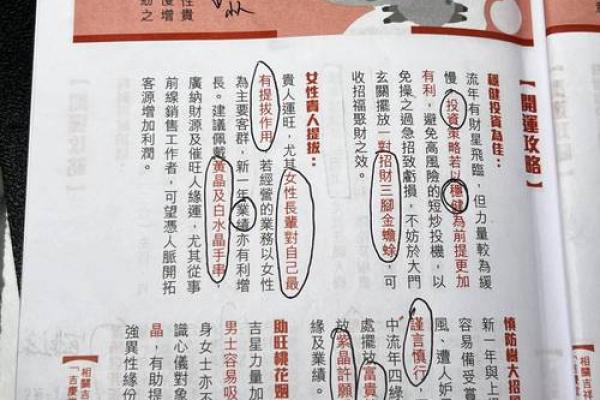 性貴
度增
【開運攻略】
穩健投資為佳：
流年有財星飛臨，但力量較為緩
慢，投資策略若以穩健為前提更加
有利，避免高風險的短炒投機，以
免操之過急招致虧損，不妨於大門
玄關擺放一對招財三腳金蟾蜍，可
收招福聚財之效。
女性貴人提拔：
貴人運旺，尤其女性長輩對自己最
有提拔作用，若經營的業務以女性
為主要客群，新一年業績亦有利增
長。建議佩戴黃晶及白水晶手串，
廣納財源及催旺人緣運，尤其從事
前線銷售工作者，可望憑人脈開拓
客源增加利潤。
慎防樹大招
新一年與上
容易受賞
風、遭人妒
謹言慎行
中流年四綠
處擺放富貴
放紫晶許願
緣及業績。
助旺桃花姻
吉星力量加
男士容易吸
身女士亦不
識心儀對象
晶，有助提
強異性緣份
【相關吉
「吉慶